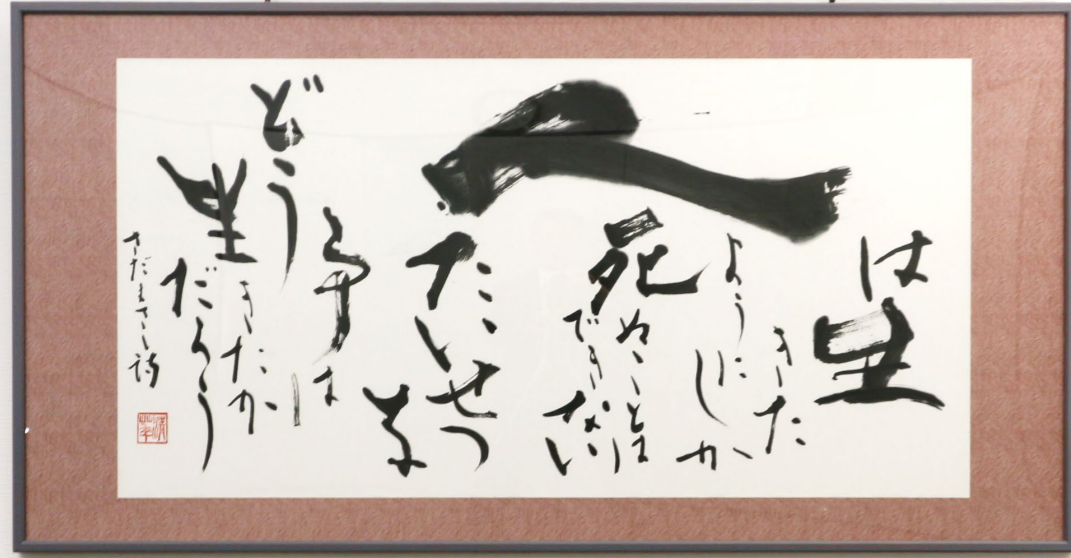 人は生
きた
ようにしか
死ぬことは
できない
たいせつ
な
事は
どう
生きたか
だろう
さだまさし詩